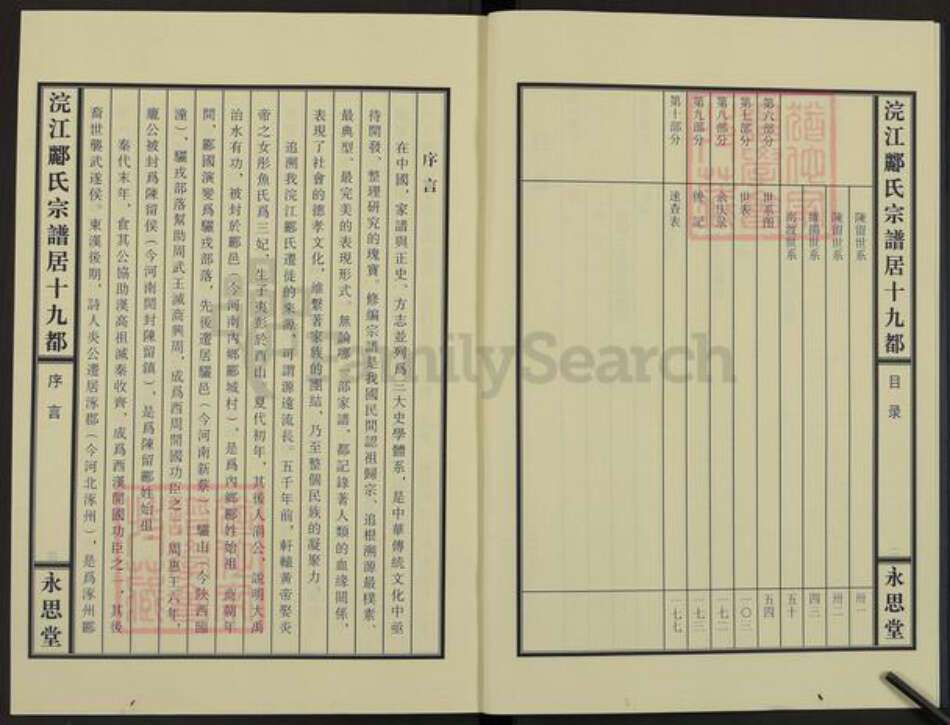 浣江酈氏宗譜居十九都
目录
永思堂
陳留世系
卅一
陳留世系
卅二
睢陽世系
四三
南渡世系
五十
第六部分
世系图
五四
第七部分
世表
一〇三
第八部分
余庆录
一七二
第九部分
後记
一七三
第十部分
速查表
一七七
序言
在中國，家譜與正史、方志並列爲三大史學體系，是中華傳統文化中亟
待開發、整理研究的瑰寶。修編宗譜是我國民間認祖歸宗、追根溯源最樸素、
最典型、最完美的表現形式。無論哪一部家譜，都記錄著人類的血緣關係，
表現了社會的德孝文化，維繫著家族的團結，乃至整個民族的凝聚力。
追溯我浣江酈氏遷徙的來源，可謂源遠流長。五千年前，軒轅黃帝娶炎
帝之女彤魚氏爲三妃，生子夷彭於酉山。夏代初年，其後人涓公，說明大禹
治水有功，被封於酈邑（今河南內鄉酈城村），是爲內鄉酈姓始祖。商朝年
間，酈國演變爲驪戎部落，先後遷居驪邑（今河南新蔡）、驪山（今陝西臨
潼），驪戎部落幫助周武王滅商興周，成爲西周開國功臣之一。周惠王六年，
龐公被封爲陳留侯（今河南開封陳留鎮），是爲陳留酈姓始祖。
秦代末年，食其公協助漢高祖滅秦收齊，成爲西漢開國功臣之一，其後
裔世襲武遂侯。東漢後期，詩人炎公遷居涿郡（今河北涿州），是爲涿州酈
浣江酈氏宗譜居十九都
序言
永思堂
FamilySearch